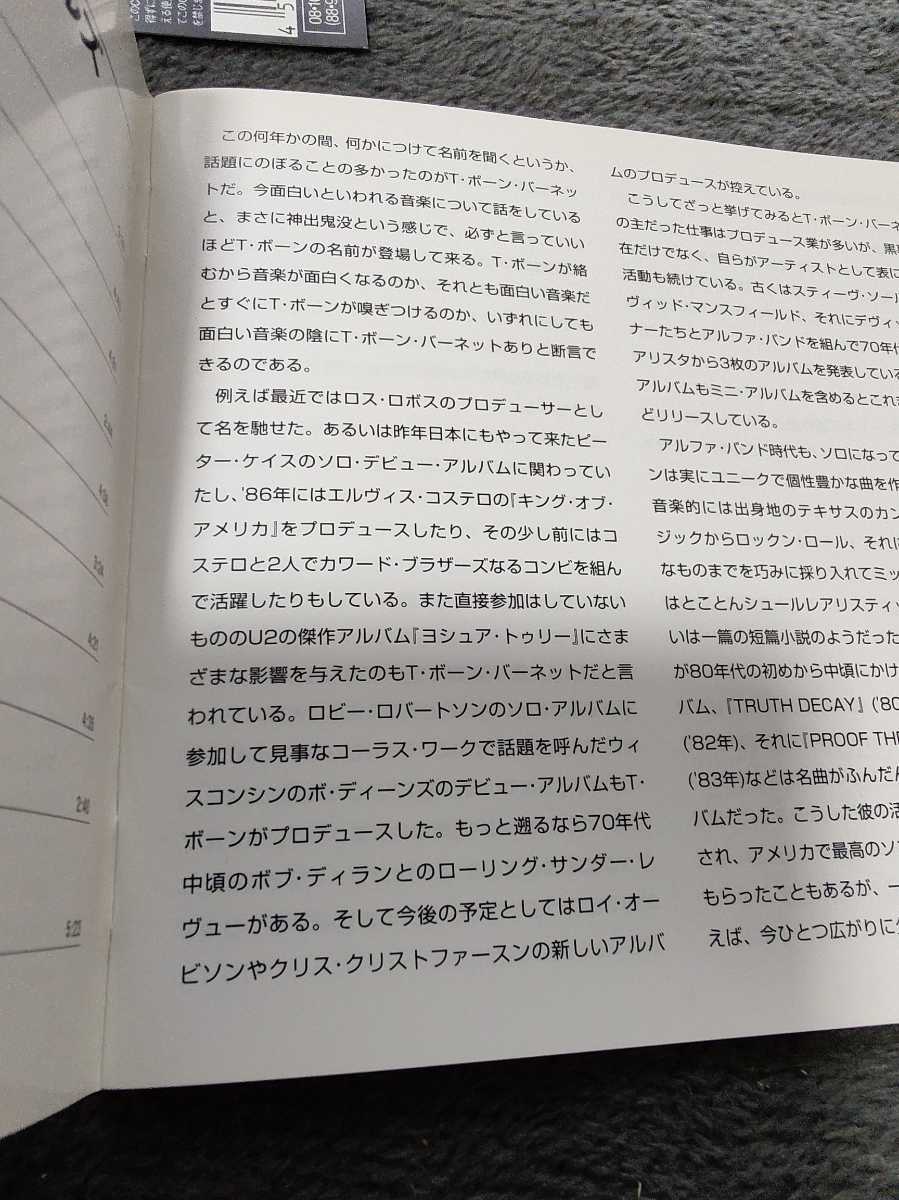 この何年かの間、何かにつけて名前を聞くというか、
話題にのぼることの多かったのがT・ボーン・バーネッ
トだ。今面白いといわれる音楽について話をしている
と、まさに神出鬼没という感じで、必ずと言っていい
ほどT・ボーンの名前が登場して来る。T・ボーンが絡
むから音楽が面白くなるのか、それとも面白い音楽だ
とすぐにT・ボーンが嗅ぎつけるのか、いずれにしても
面白い音楽の陰にT・ボーン・バーネットありと断言で
きるのである。
例えば最近ではロス・ロボスのプロデューサーとし
て名を馳せた。あるいは昨年日本にもやって来たピー
ター・ケイスのソロ・デビュー・アルバムに関わってい
たし、'86年にはエルヴィス・コステロの『キング・オブ・
アメリカ』をプロデュースしたり、その少し前にはコ
ステロと2人でカワード・ブラザーズなるコンビを組ん
で活躍したりもしている。また直接参加はしていない
もののU2の傑作アルバム『ヨシュア・トゥリー』にさま
ざまな影響を与えたのもT・ボーン・バーネットだと言
われている。ロビー・ロバートソンのソロ・アルバムに
参加して見事なコーラス・ワークで話題を呼んだウィ
スコンシンのボ・ディーンズのデビュー・アルバムもT・
ボーンがプロデュースした。もっと遡るなら70年代
中頃のボブ・ディランとのローリング・サンダー・レ
ヴューがある。そして今後の予定としてはロイ・オー
ビソンやクリス・クリストファースンの新しいアルバ
ムのプロデュースが控えている。
こうしてざっと挙げてみるとT・ボーン・バーネ
の主だった仕事はプロデュース業が多いが、黒
在だけでなく、自らがアーティストとして表に
活動も続けている。古くはスティーヴ・ソール
ヴィッド・マンスフィールド、それにデヴィッ
ナーたちとアルファ・バンドを組んで70年代
アリスタから3枚のアルバムを発表している
アルバムもミニ・アルバムを含めるとこれま
どリリースしている。
アルファ・バンド時代も、ソロになって
ンは実にユニークで個性豊かな曲を作
音楽的には出身地のテキサスのカン
ジックからロックン・ロール、それに
なものまでを巧みに採り入れてミッ
はとことんシュールレアリスティッ
いは一篇の短篇小説のようだった
が80年代の初めから中頃にかけ
バム、『TRUTH DECAY』('80
('82年)、それに『PROOF THR
('83年)などは名曲がふんだん
バムだった。こうした彼の活
され、アメリカで最高のソン
もらったこともあるが、一
えば、今ひとつ広がりに欠
4:08
3:24
4:21
4:35
2:40
5:23